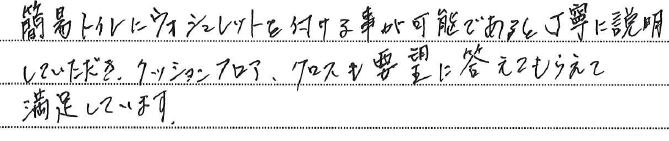 簡易トイレにウォシュレットを付ける事が可能であると丁寧に説明
していただき、クッションフロア、クロスも要望に答えてもらえて
満足しています。